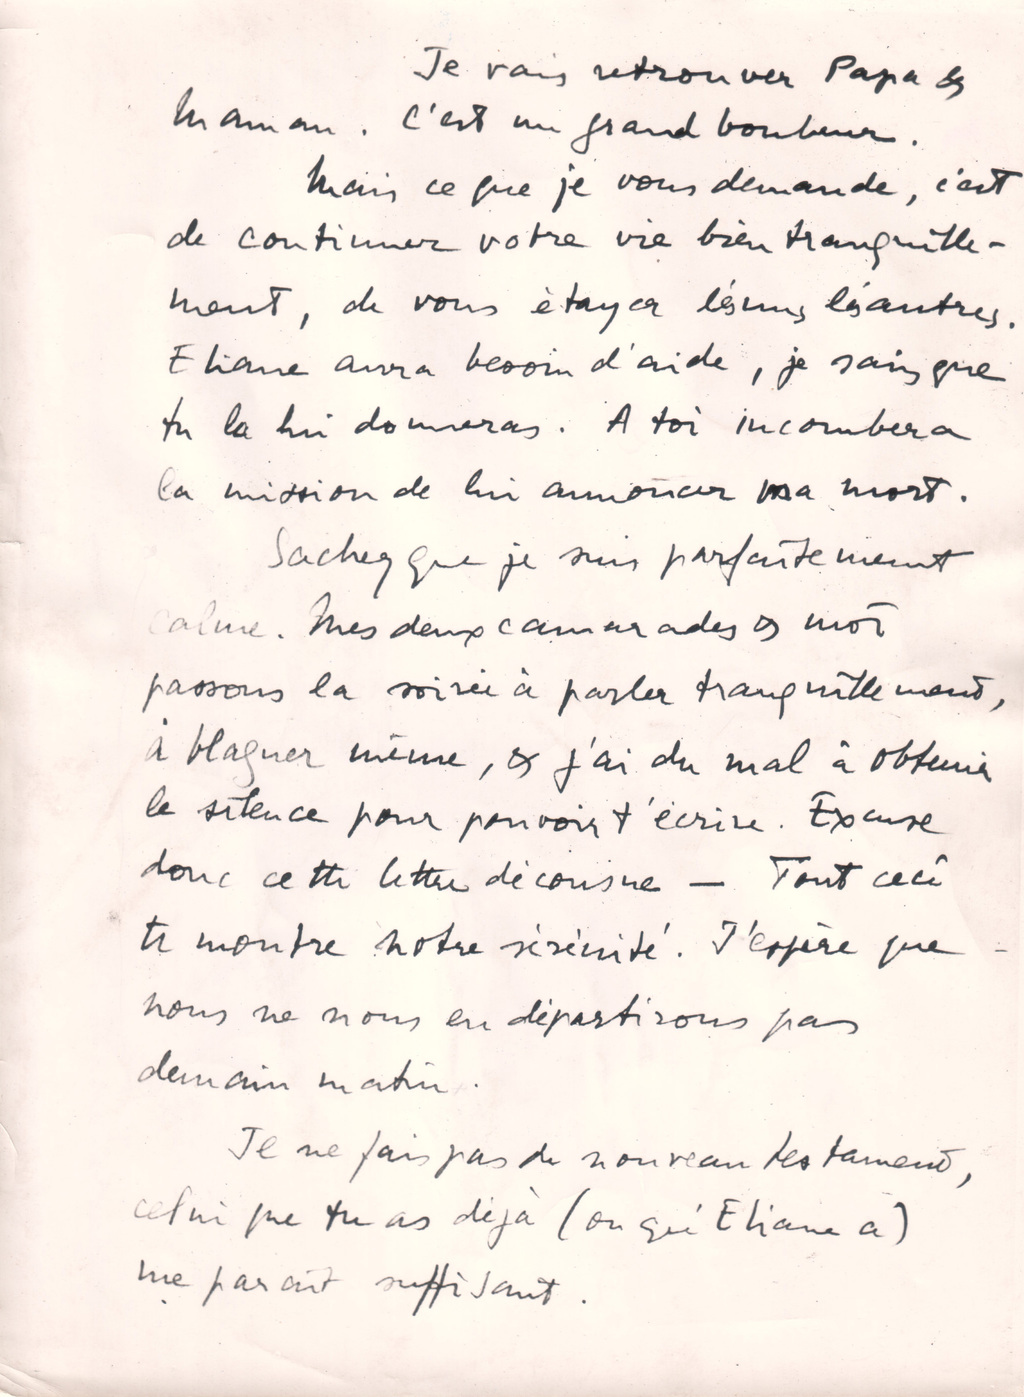 Je vais retrouver Papa &
Maman. C'est un grand bonheur.
Mais ce que je vous demande, c'est
de continuer votre vie bien tranquille-
ment, de vous étayer les uns les autres.
Eliane aura besoin d'aide, je sais que
tu la lui donneras. A toi incombera
la mission de lui annoncer ma mort.
Sachez que je suis parfaitement
calme. Mes deux camarades & moi
passons la soirée à parler tranquillement,
à blaguer même, & j'ai du mal à obtenir
le silence pour pouvoir t'écrire. Excuse
donc cette lettre décousue — Tout ceci
te montre notre sérénité. J'espère que
nous ne nous en départirons pas
demain matin.
Je ne fais pas de nouveau testament,
celui que tu as déjà (ou qu'Eliane a)
me paraît suffisant.